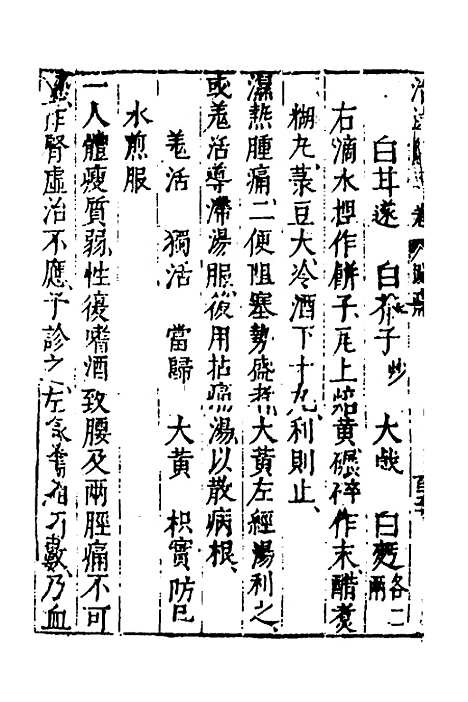 白甘遂　白芥子炒　大戟　白麪各二兩
右滴水揑作餅子瓦上焙黃碾碎作末醋煑
糊丸菉豆大冷酒下十丸利則止
濕熱腫痛二便阻塞勢盛者大黃左經湯利之
或羗活導滯湯服後用拈痛湯以散病根
羗活　獨活　當歸　大黃　枳實　防巳
水煎服
一人體瘦質弱性復嗜酒致腰及兩脛痛不可
作腎虛治不應予診之左數乃血